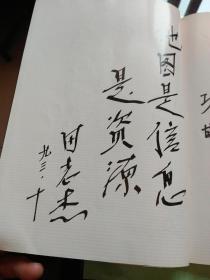 地图是信息
是资源
田志杰
九三.十